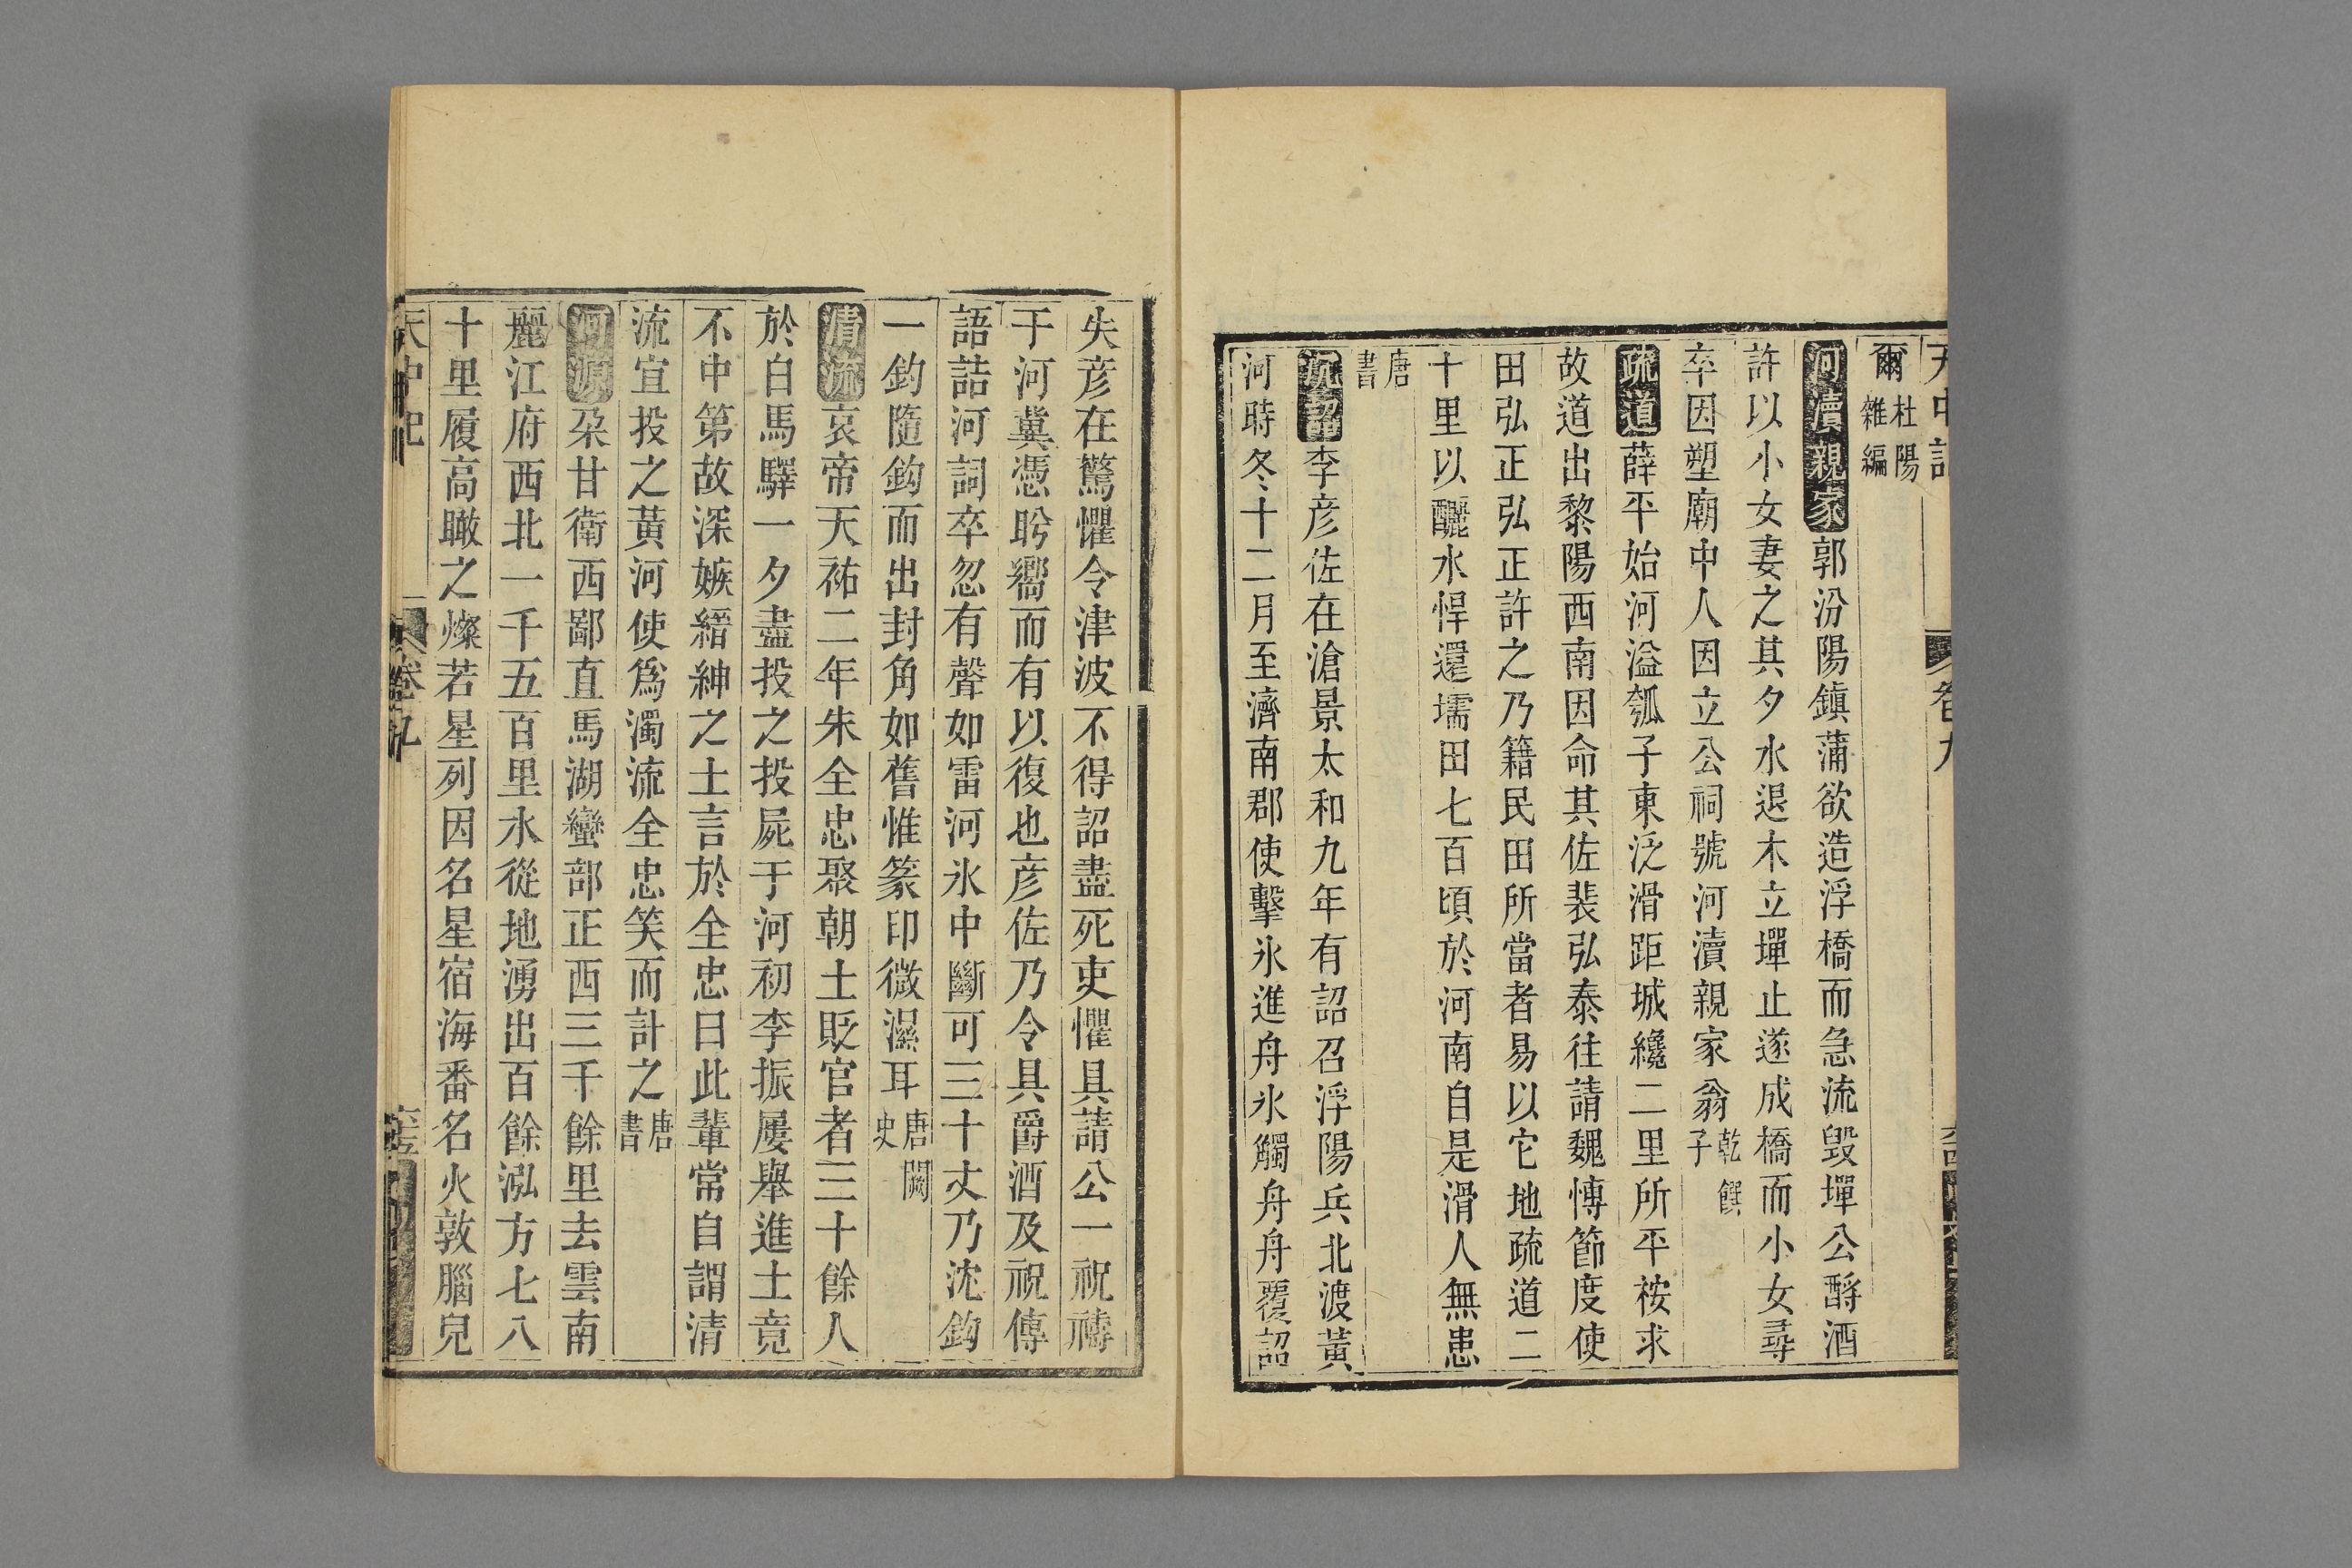 爾杜陽雜編
河瀆親家郭汾陽鎮蒲欲造浮橋而急流毀墠公酹酒
許以小女妻之其夕水退木立墠止遂成橋而小女尋
卒因塑廟中人因立公祠號河瀆親家翁乾𦠆子
疏道薛平始河溢瓠子東泛滑距城纔二里所平按求
故道出黎陽西南因命其佐裴弘泰往請魏博節度使
田弘正弘正許之乃籍民田所當者易以它地疏道二
十里以釃水悍還壖田七百頃於河南自是滑人無患
唐書
沉詔李彦佐在滄景太和九年有詔召浮陽兵北渡黃
河時冬十二月至濟南郡使擊氷進舟氷觸舟舟覆詔
失彦在驚懼令津波不得詔盡死吏懼具請公一祝禱
于河冀憑肸嚮而有以復也彦佐乃令具爵酒及祝傳
語詰河詞卒忽有聲如雷河氷中斷可三十丈乃沈鈎
一鈞隨鈎而出封角如舊惟篆印微濕耳唐闕史
清流哀帝天祐二年朱全忠聚朝士貶官者三十餘人
於白馬驛一夕盡投之投屍于河初李振屢舉進士竟
不中第故深嫉縉紳之士言於全忠曰此輩常自謂清
流宜投之黃河使爲濁流全忠笑而計之唐書
河源朶甘衛西鄙直馬湖蠻部正西三千餘里去雲南
麗江府西北一千五百里水從地湧出百餘泓方七八
十里履高瞰之燦若星列因名星宿海番名火敦腦兒
天中記 卷九